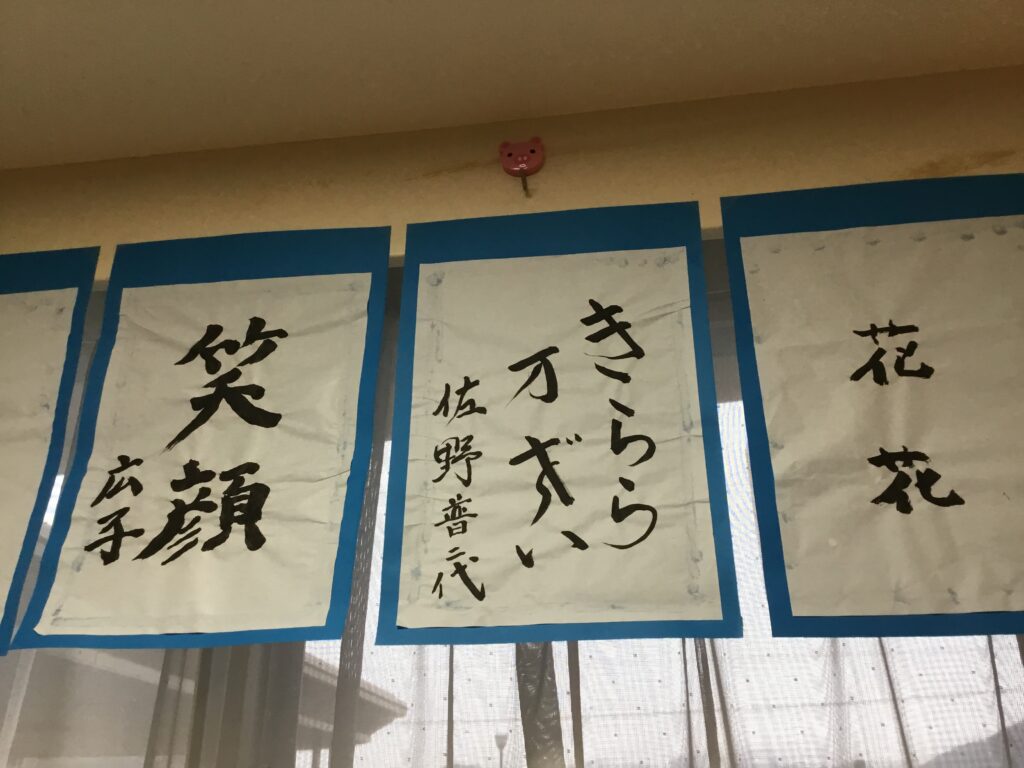 花花
きらら
万ざい
佐野普二代
笑顔
広子